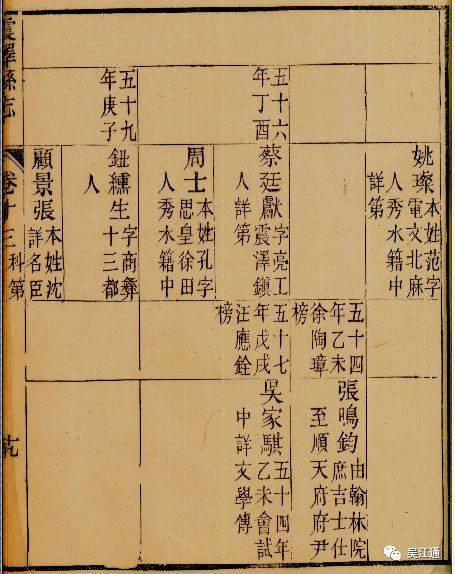 姚璨本姓范字
電文北麻
人秀水籍中
詳第
五十四
年乙未
徐陶璋
榜
張鳴鈞由翰林院
庶吉士仕
至順天府府尹
五十六
年丁酉
蔡廷獻字亮工
震澤鎮
人詳第
五十七
年戊戌
汪應銓
榜
吳家騏五十四年
乙未會試
中詳文學傳
周士本姓孔字
思皇徐田
人秀水籍中
五十九
年庚子
鈕纁生字商彝
十三都
人
顧景張本姓沈
詳名臣
震澤縣志
卷十三
科第
吴江通